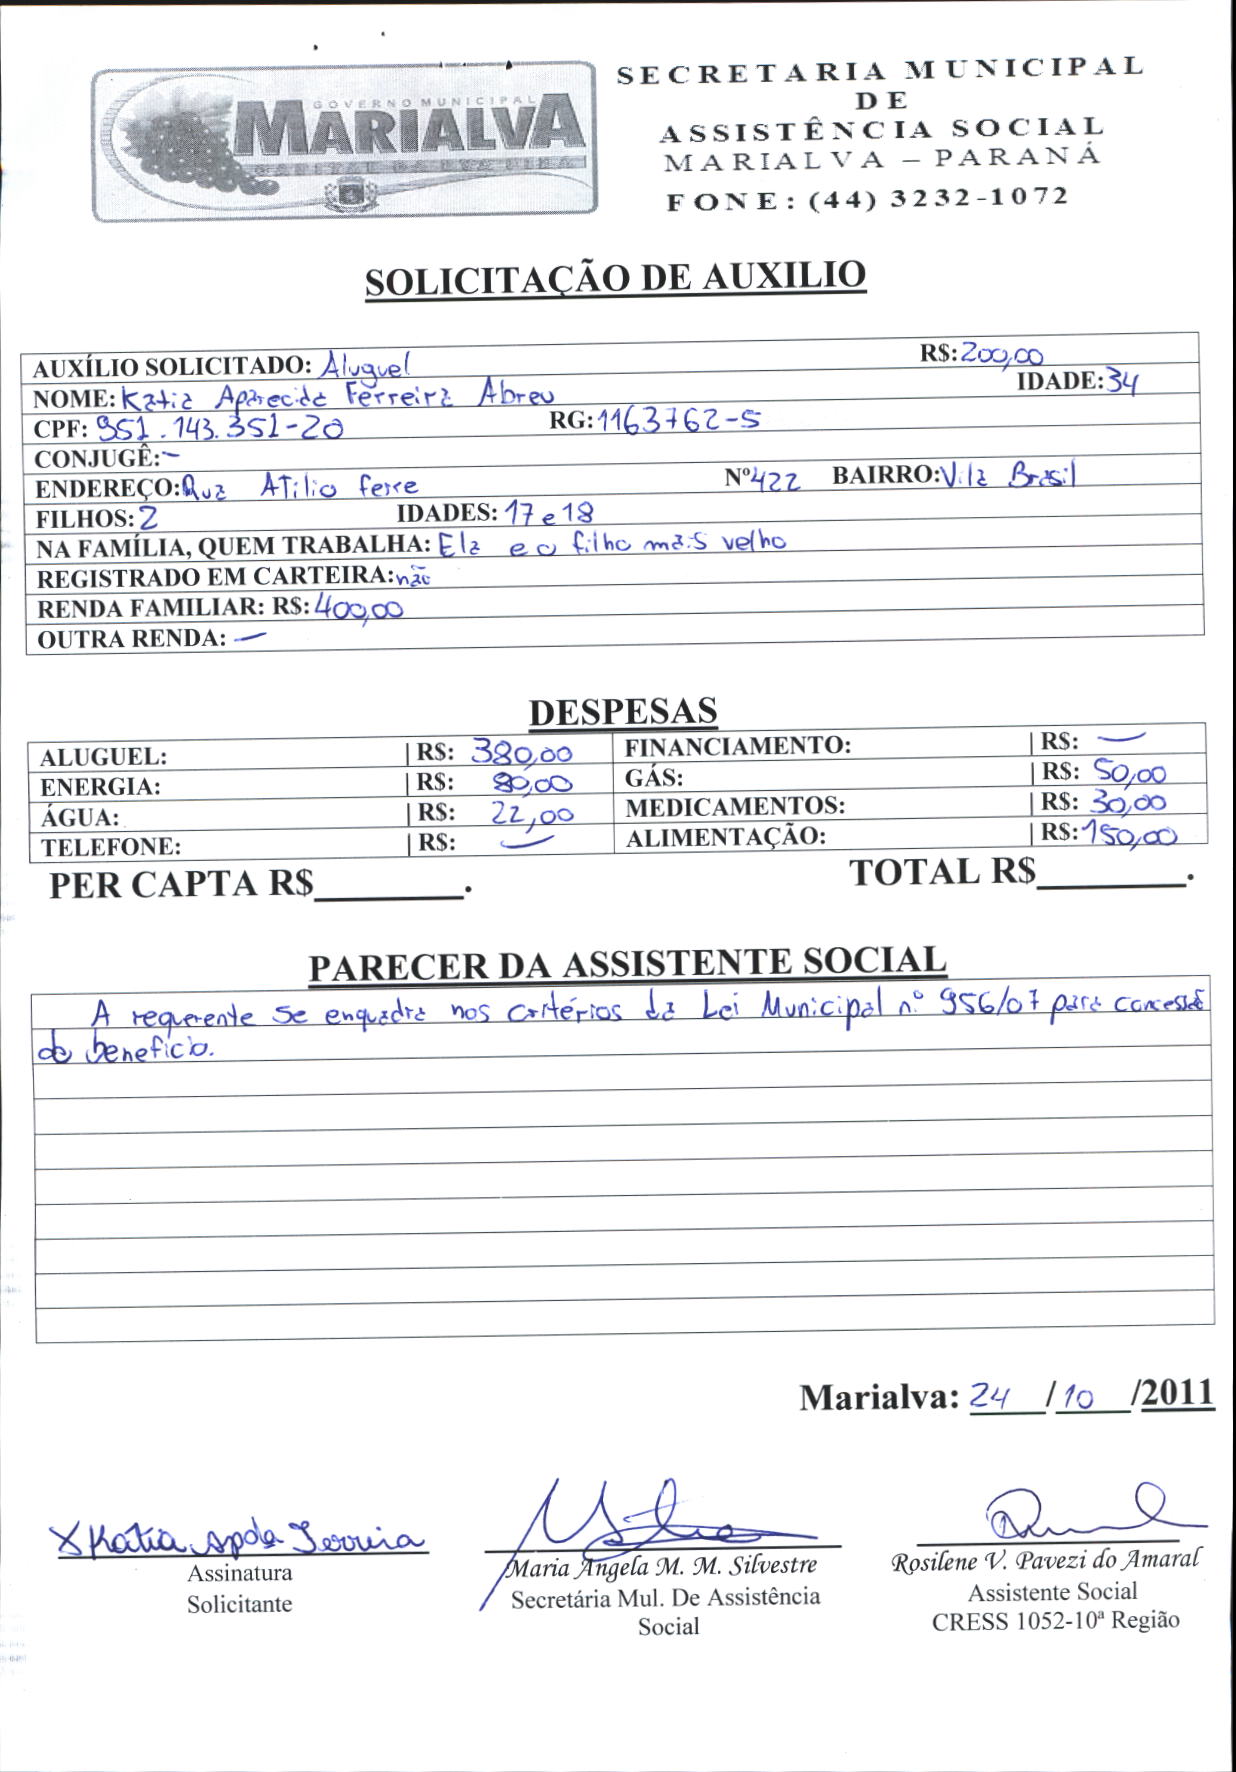 GOVERNO MUNICIPAL
MARIALVA
CAPITAL DA UVA FINA
SECRETARIA MUNICIPAL
DE
ASSISTÊNCIA SOCIAL
MARIALVA – PARANÁ
FONE: (44) 3232-1072
SOLICITAÇÃO DE AUXILIO
AUXÍLIO SOLICITADO: Aluguel R$: 200,00
NOME: Katia Aparecida Ferreira Abreu IDADE: 34
CPF: 951.143.351-20 RG: 1163762-5
CONJUGÊ: -
ENDEREÇO: Rua Atilio ferre Nº 422 BAIRRO: Vila Brasil
FILHOS: 2 IDADES: 17 e 18
NA FAMÍLIA, QUEM TRABALHA: Ela e o filho mais velho
REGISTRADO EM CARTEIRA: não
RENDA FAMILIAR: R$: 400,00
OUTRA RENDA: —
DESPESAS
ALUGUEL: | R$: 380,00 FINANCIAMENTO: | R$: —
ENERGIA: | R$: 80,00 GÁS: | R$: 50,00
ÁGUA: | R$: 22,00 MEDICAMENTOS: | R$: 30,00
TELEFONE: | R$: — ALIMENTAÇÃO: | R$: 150,00
PER CAPTA R$________. TOTAL R$________.
PARECER DA ASSISTENTE SOCIAL
A requerente se enquadra nos critérios da Lei Municipal nº 956/07 para concessão
do benefício.
Marialva: 24 /10 /2011
X Katia Apda Ferreia
Assinatura
Solicitante
Maria Angela M. M. Silvestre
Secretária Mul. De Assistência
Social
Rosilene V. Pavezi do Amaral
Assistente Social
CRESS 1052-10ª Região